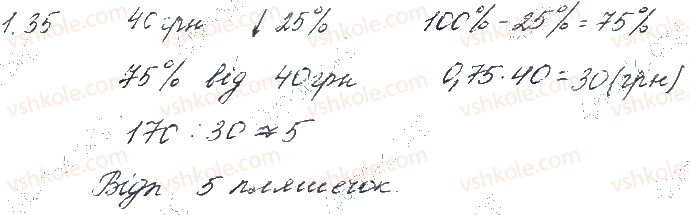 1.35 40 грн ↓ 25% 100% - 25% = 75%
75% від 40 грн 0,75 · 40 = 30 (грн)
170 : 30 ≈ 5
Відп 5 пляшечок.